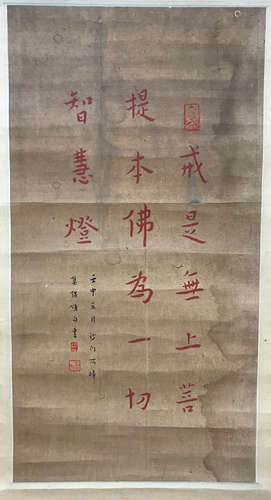 戒是無上菩
提本佛為一切
智慧燈
壬申 月沙門